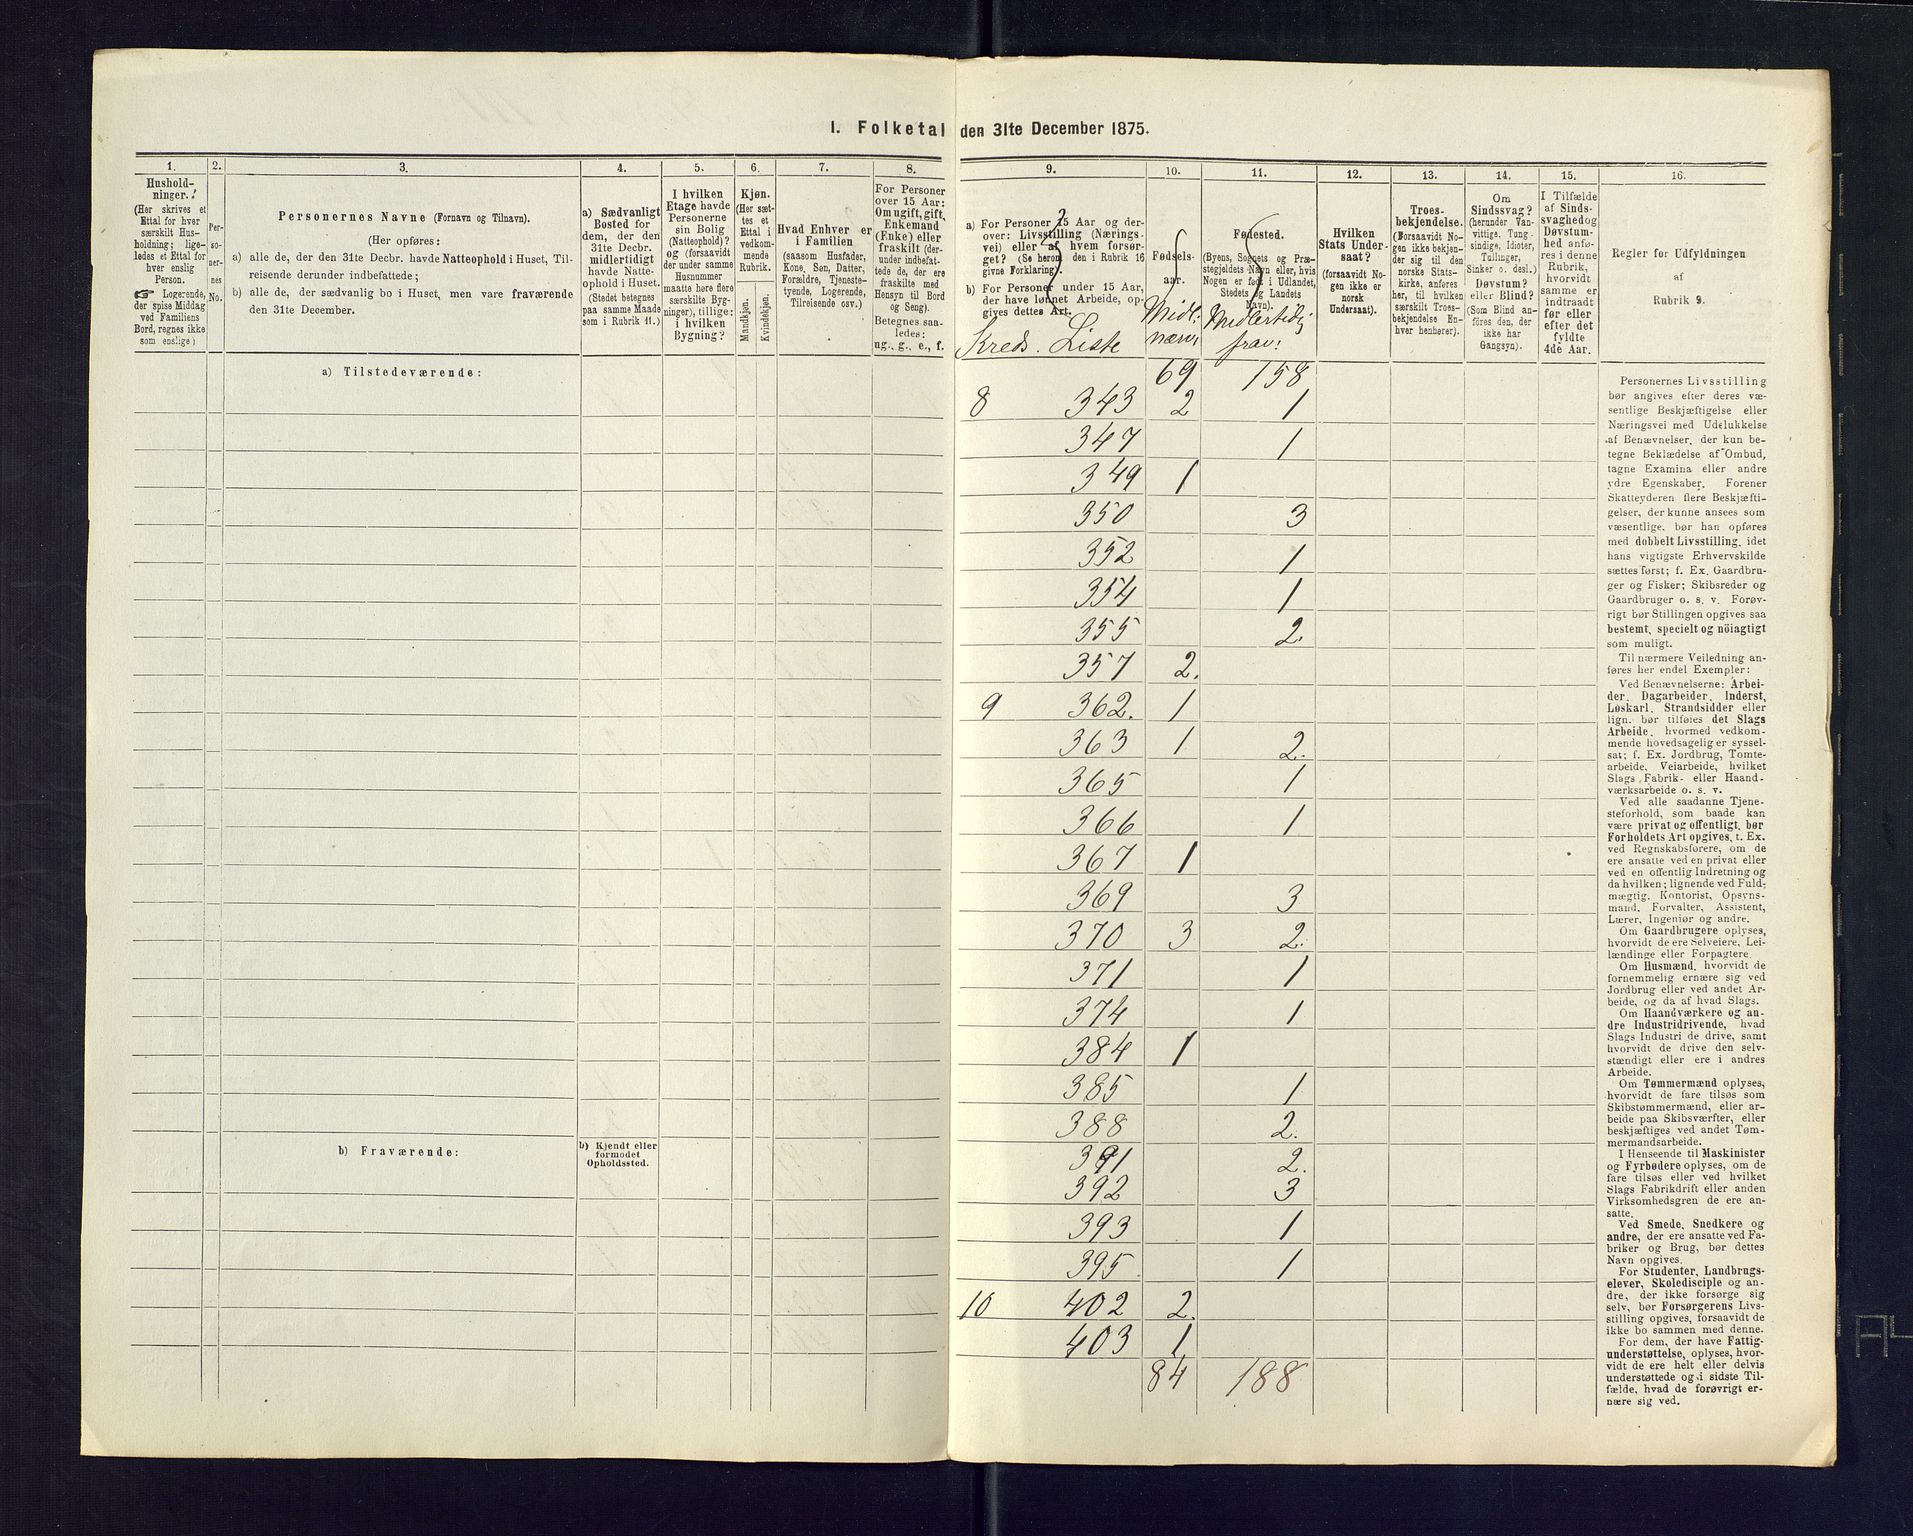 I. Folketal den 31te December 1875.
1.
Hushold-
ninger.
(Her skrives et
Ettal for hver
særskilt Hus-
holdning; lige-
ledes et Ettal for
hver enslig
Person.
☞ Logerende,
der spise Middag
ved Familiens
Bord, regnes ikke
som enslige)
2.
Per-
so-
ner-
nes
No.
3.
Personernes Navne (Fornavn og Tilnavn).
(Her opføres:
a) alle de, der den 31te Decbr. havde Natteophold i Huset, Til-
reisende derunder indbefattede;
b) alle de, der sædvanlig bo i Huset, men vare fraværende
den 31te December.
4.
a) Sædvanligt
Bosted for
dem, der den
31te Decbr.
midlertidigt
havde Natte-
ophold i Huset.
(Stedet betegnes
paa samme Maade
som i Rubrik 11.)
5.
I hvilken
Etage havde
Personerne
sin Bolig
(Natteophold)?
og (forsaavidt
der under samme
Husnummer
maatte høre flere
særskilte Byg-
ninger), tillige:
i hvilken
Bygning?
6.
Kjøn.
(Her sæt-
tes et
Ettal i
vedkom-
mende
Rubrik.
Mandkjøn.
Kvindekjøn.
7.
Hvad Enhver er
i Familien
(saasom Husfader,
Kone, Søn, Datter,
Forældre, Tjeneste-
tyende, Logerende,
Tilreisende osv.)
8.
For Personer
over 15 Aar:
Om ugift, gift,
Enkemand
(Enke) eller
fraskilt (der-
under indbefat-
tede de, der ere
fraskilte med
Hensyn til Bord
og Seng).
Betegnes saa-
ledes:
ug., g., e., f.
9.
a) For Personer 15 Aar og der-
over: Livsstilling (Nærings-
vei) eller af hvem forsør-
get? (Se heron den i Rubrik 16
givne Forklaring).
b) For Personer under 15 Aar,
der have lønnet Arbeide, op-
gives dettes Art.
Kreds. Liste
10.
Fødsels-
aar.
Midl:
nærv:
11.
Fødested.
(Byens, Sognets og Præ-
stegjeldets Navn eller, hvis
Nogen er født i Udlandet,
Stedets og Landets
Navn).
Midlertidig
frav:
12.
Hvilken
Stats Under-
saat?
(forsaavidt No-
gen ikke er
norsk
Undersaat).
13.
Troes-
bekjendelse.
(Forsaavidt No-
gen ikke bekjen-
der sig til den
norske Stats-
kirke, anføres
her, til hvilken
særskilt Troes-
bekjendelse En-
hver henhører).
14.
Om
Sindssvag?
(herunder Van-
vittige, Tung-
sindige, Idioter,
Tullinger,
Sinker o. desl.)
Døvstum?
eller Blind?
(Som Blind an-
føres den, der
ikke har
Gangsyn).
15.
I Tilfælde
af Sinds-
svaghed og
Døvstum-
hed anfø-
res i denne
Rubrik,
hvorvidt
samme er
indtraadt
før eller
efter det
fyldte
4de Aar.
16.
Regler for Udfyldningen
af
Rubrik 9.
a) Tilstedeværende:
69 158
8 343 2 1
347 1
349 1
350 3
352 1
354 1
355 2.
357 2.
9 362. 1
363 1 2.
365 1
366 1
367 1
369 3
370 3 2.
371 1
374 1
384 1
385 1
388 2.
391 2.
392 3
393 1
395 1
10 402 2.
403 1
84 188
b) Fraværende:
b) Kjendt eller
formodet
Opholdssted.
Personernes Livsstilling
bør angives efter deres væ-
sentlige Beskjæftigelse eller
Næringsvei med Udelukkelse
af Benævnelser, der kun be-
tegne Beklædelse af Ombud,
tagne Examina eller andre
ydre Egenskaber. Forener
Skatteyderen flere Beskjæfti-
gelser, der kunne ansees som
væsentlige, bør han opføres
med dobbelt Livsstilling, idet
hans vigtigste Erhvervskilde
sættes først; f. Ex. Gaardbru-
ger og Fisker; Skibsreder og
Gaardbruger o. s. v. Forøv-
rigt bør Stillingen opgives saa
bestemt, specielt og nöiagtigt
som muligt.
Til nærmere Veiledning an-
føres her endel Exempler:
Ved Benævnelserne: Arbei-
der, Dagarbeider, Inderst,
Løskarl, Strandsidder eller
lign. bør tilføies det Slags
Arbeide, hvormed vedkom-
mende hovedsagelig er syssel-
sat; f. Ex. Jordbrug, Tomte-
arbeide, Veiarbeide, hvilket
Slags Fabrik- eller Haand-
værksarbeide o. s. v.
Ved alle saadanne Tjene-
steforhold, som baade kan
være privat og offentligt, bør
Forholdets Art opgives, t. Ex.
ved Regnskabsførere, om de
ere ansatte ved en privat eller
ved en offentlig Indretning og
da hvilken; lignende ved Fuld-
mægtig, Kontorist, Opsyns-
mand, Forvalter, Assistent,
Lærer, Ingeniør og andre.
Om Gaardbrugere oplyses,
hvorvidt de ere Selveiere, Lei-
lændinge eller Forpagtere.
Om Husmænd, hvorvidt de
fornemmelig ernære sig ved
Jordbrug eller ved andet Ar-
beide, og da af hvad Slags.
Om Haandværkere og an-
dre Industridrivende, hvad
Slags Industri de drive, samt
hvorvidt de drive den selv-
stændigt eller ere i andres
Arbeide.
Om Tømmermænd oplyses,
hvorvidt de fare tilsøs som
Skibstømmermænd, eller ar-
beide paa Skibsværfter, eller
beskjæftiges ved andet Tøm-
mermandsarbeide.
I Henseende til Maskinister
og Fyrbødere oplyses, om de
fare tilsøs eller ved hvilket
Slags Fabrikdrift eller anden
Virksomhedsgren de ere an-
satte.
Ved Smede, Snedkere og
andre, der ere ansatte ved Fa-
briker og Brug, bør dettes
Navn opgives.
For Studenter, Landbrugs-
elever, Skoledisciple og an-
dre, der ikke forsørge sig
selv, bør Forsørgerens Livs-
stilling opgives, forsaavidt de
ikke bo sammen med denne.
For dem, der have Fattig-
understøttelse, oplyses, hvor-
vidt de ere helt eller delvis
understøttede og i sidste Til-
fælde, hvad de forøvrigt er-
nære sig ved.